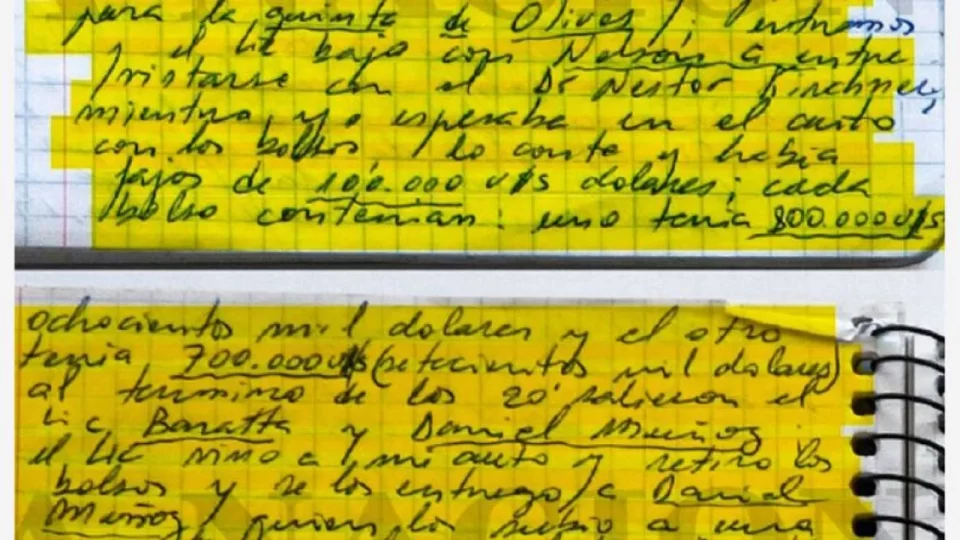 para la quinta de Olivos, entramos
y el Lic bajo con Nelson a entre
/vistarse con el Dr Nestor Kirchner,
mientras yo esperaba en el auto
con los bolsos, lo conte y habia
fajos de 100.000 u$s dolares; cada
bolso contenian: uno tenia 800.000 u$s
ochocientos mil dolares y el otro
tenia 700.000 u$s (setecientos mil dolares)
al termino de los 20' salieron el
Lic, Baratta y Daniel Muñoz
el Lic vino a mi auto y retiro los
bolsos y se los entrego a Daniel
Muñoz, quien lo subio a una